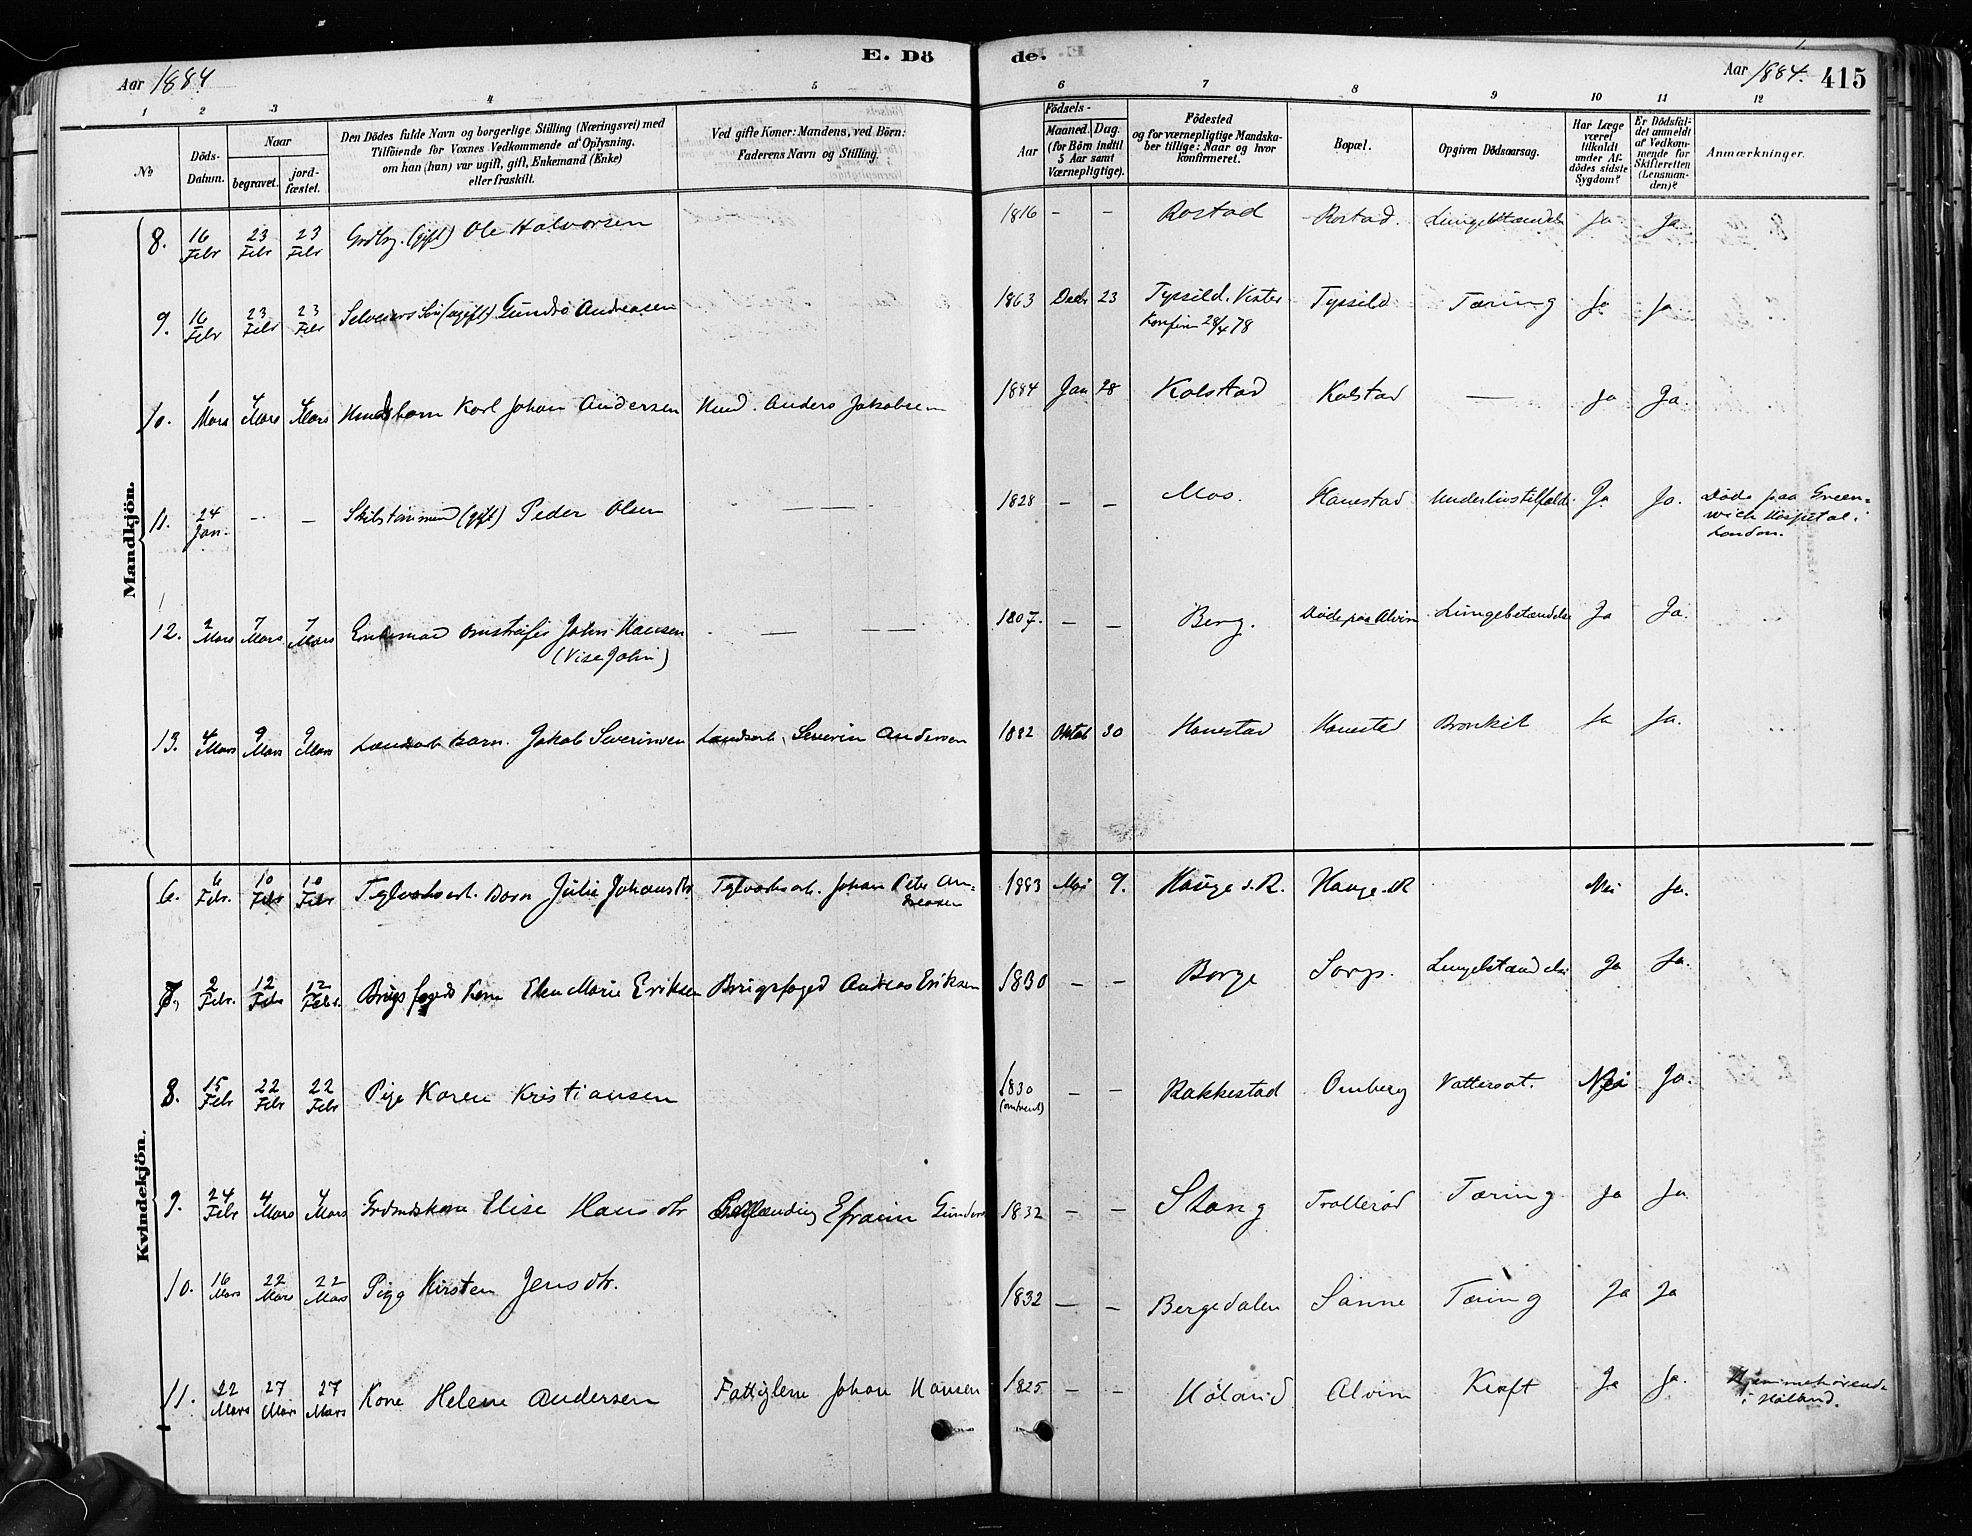 E. Dö de.
Aar 1884
Aar 1884. 415
1 2 3 4 5 6 7 8 9 10 11 12
No
Döds-Datum.
Naar
begravet.
jord-fæstet.
Den Dödes fulde Navn og borgerlige Stilling (Næringsvei) med
Tilföiende for Voxnes Vedkommende af Oplysning,
om han (hun) var ugift, gift, Enkemand (Enke)
eller fraskilt.
Ved gifte Koner: Mandens, ved Börn:
Faderens Navn og Stilling.
Födsels-
Aar
Maaned. Dag.
(for Börn indtil
5 Aar samt
Værnepligtige).
Födested
og for værnepligtige Mandska-
ber tillige: Naar og hvor
konfirmeret.
Bopæl.
Opgiven Dödsaarsag.
Har Læge
været
tilkaldt
under Af-
dödes sidste
Sygdom?
Er Dödsfal-
det anmeldt
af Vedkom-
mende for
Skifteretten
(Lensman-
den)?
Anmærkninger.
Mandkjön.
8. 16 Febr 23 Febr 23 Febr (gift) Ole Halvorsen 1816 – – Rostad Rostad. Ja Ja.
9. 16 Febr 23 Febr 23 Febr Gundro Andreasen 1863 Decbr 23 Typsild. Vister Typsild Tæring Ja Ja.
Konfirm 28/4 78
10. 1 Mars 4 Mars 4 Mars Karl Johan Andersen Anders Jakobsen 1884 Jan 28 Kolstad Kolstad — Ja Ja.
11. 24 Jan. – – (gift) Peder Olsen — 1828 – – Mos. Hanestad Underlivstilfælde. Ja Ja. Døde paa Green-
wich Hospital i
London.
12. 2 Mars 7 Mars 7 Mars John Hansen — 1807. – – Berg. Døde paa Alvim Lungebetændelse Ja Ja.
(Vise John)
13. 4 Mars 9 Mars 9 Mars barn. Jakob Severinsen Severin Andersen 1882 Oktob 30 Hanestad Hanestad Bronkit Ja Ja.
Kvindekjön.
6. 6 Febr. 10 Febr 10 Febr Teglværksarb. Barn Julie Johansdtr Teglværksarb. Johan Peter An-
dreasen 1883 Mai 9. Hauge i R. Hauge i R Nei Ja.
7. 2 Febr. 12 Febr 12 Febr. Brugsfogeds Kone Elen Marie Eriksen Brugsfoged Andreas Eriksen 1830 – – Borge Sarps. Ja Ja.
8. 15 Febr 22 Febr 22 Febr Pige Karen Kristiansen 1830 – – Rakkestad Omberg Vattersot. Nei Ja.
(omtrent)
9. 24 Febr 4 Mars 4 Mars Elise Hansdtr Efraim 1832 – – Skang Trollerød Tæring Ja Ja
10. 16 Mars 22 Mars 22 Mars Pige Kirsten Jensdtr. 1832 – – Bergedalen Sanne Tæring Ja Ja
11. 22 Mars 27 Mars 27 Mars Kone Helene Andersen Fattiglem Johan Hansen 1825 – – Høland Alvim Kræft Ja Ja. Hjemmehørende
i Høland.